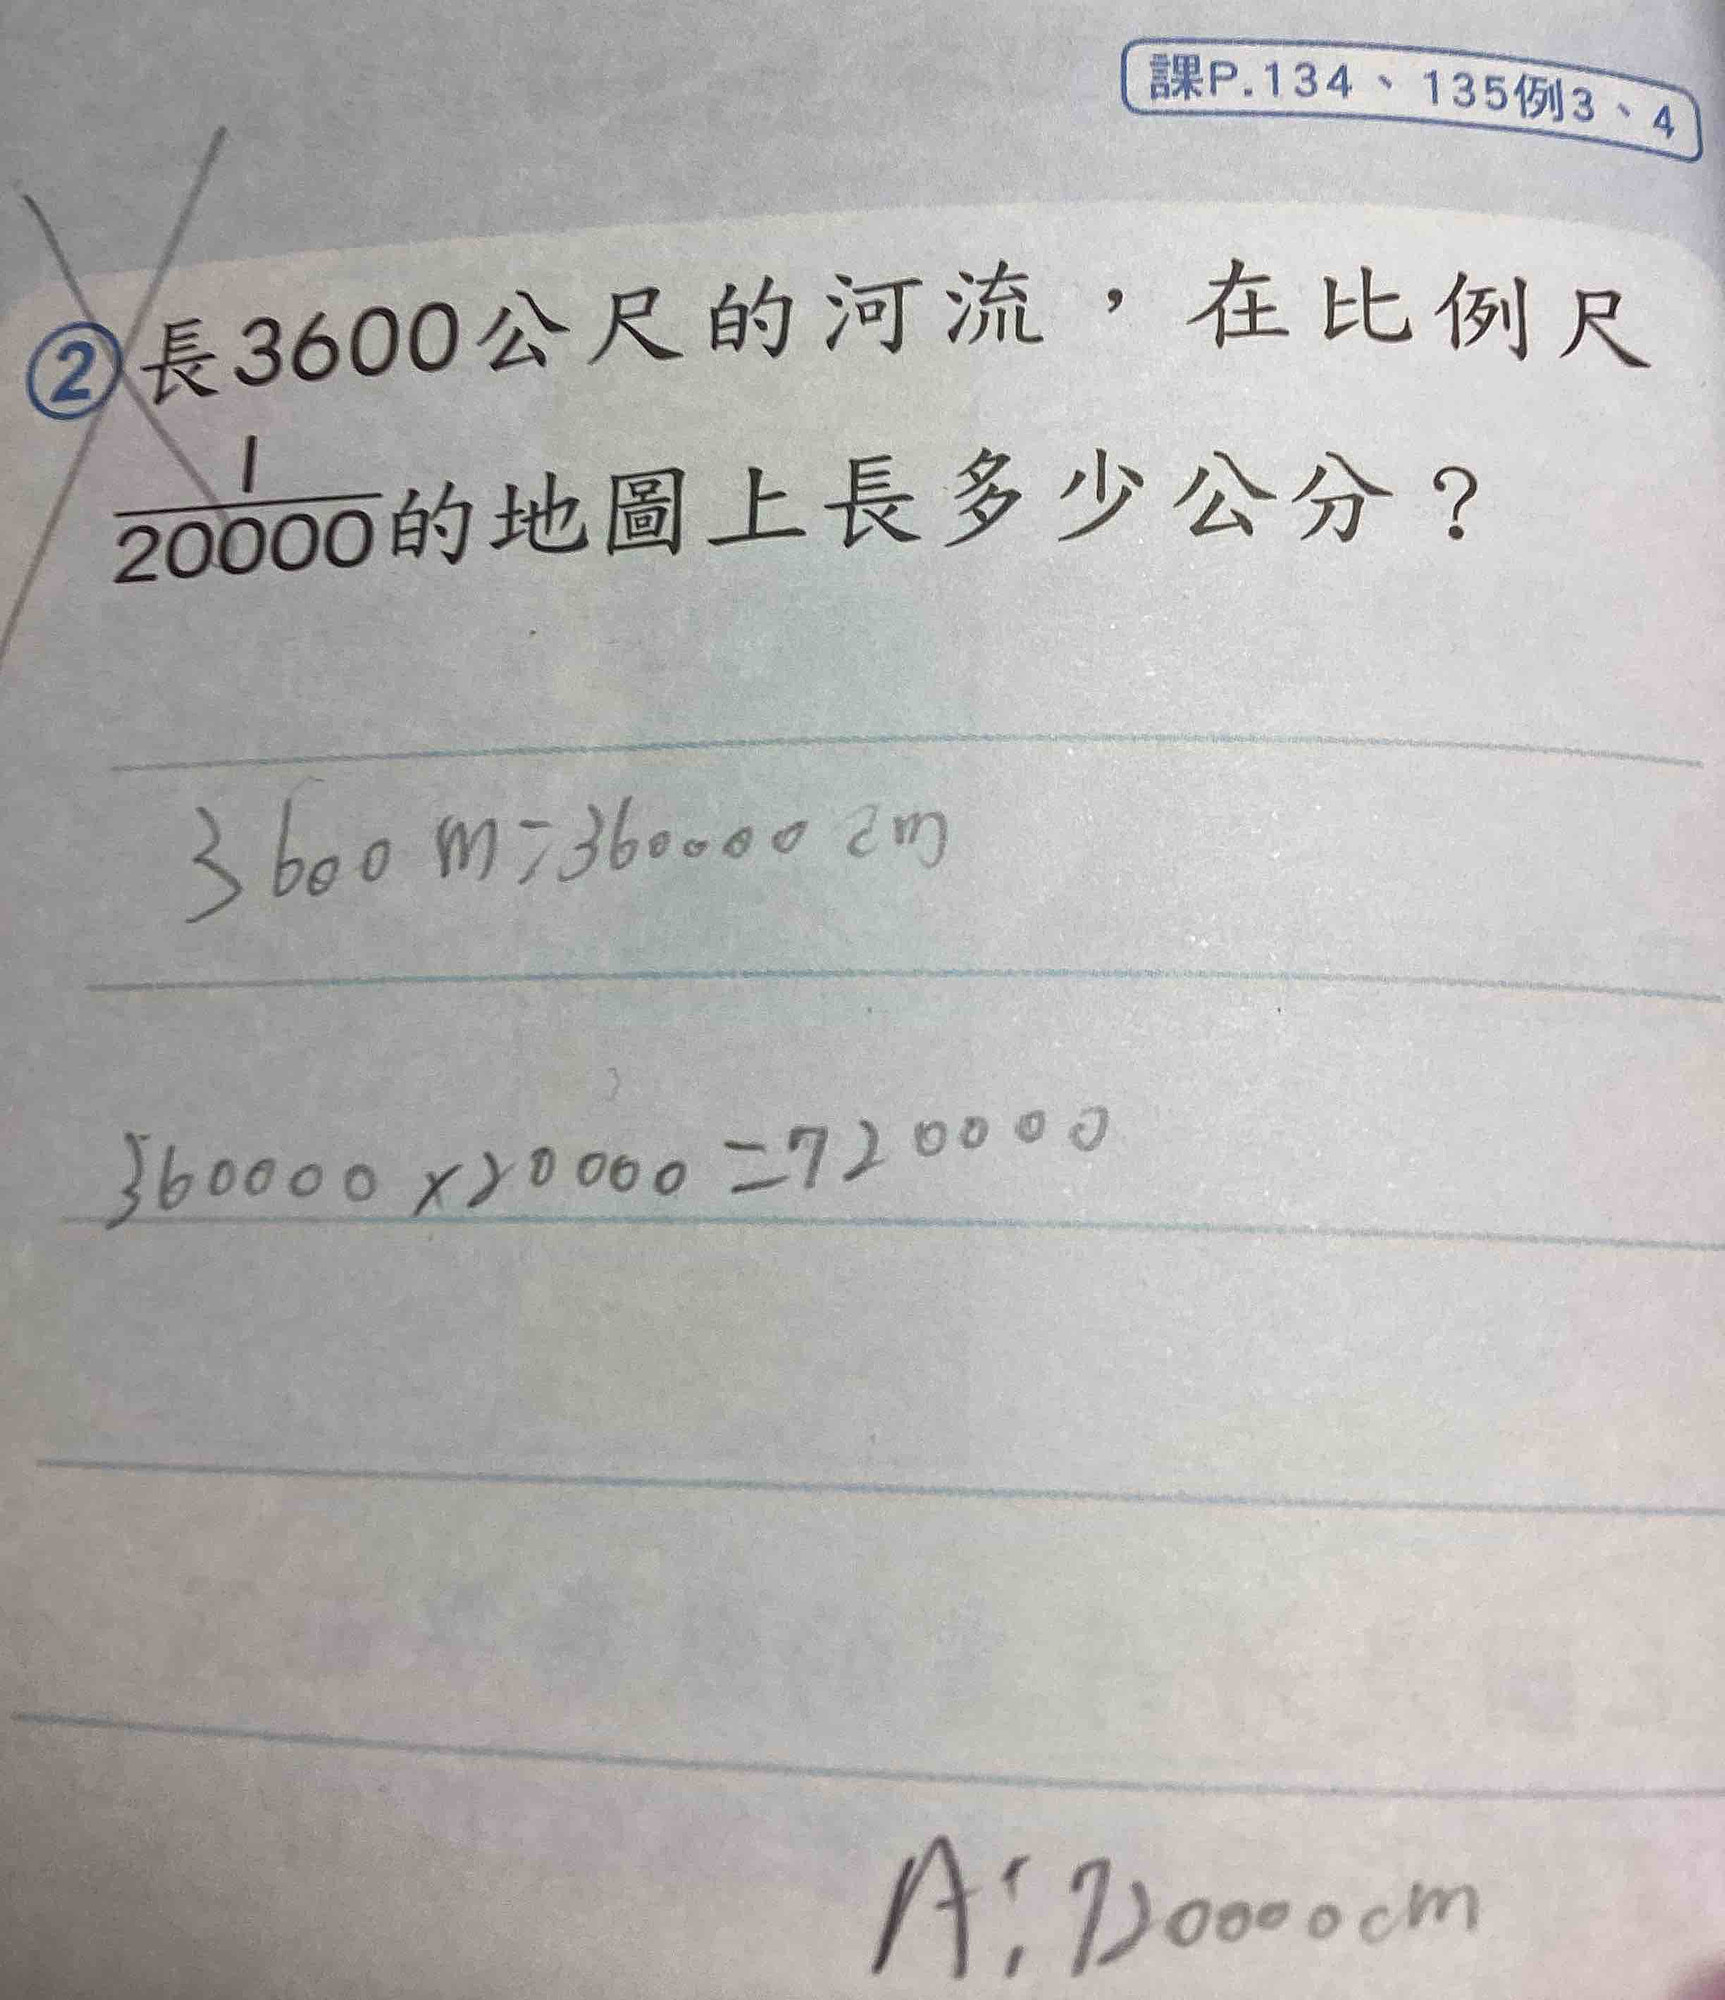 課P.134、135例3、4
②長3600公尺的河流，在比例尺
1/20000的地圖上長多少公分？
3600 m = 360000 cm
360000 × 20000 = 720000
A: 720000cm